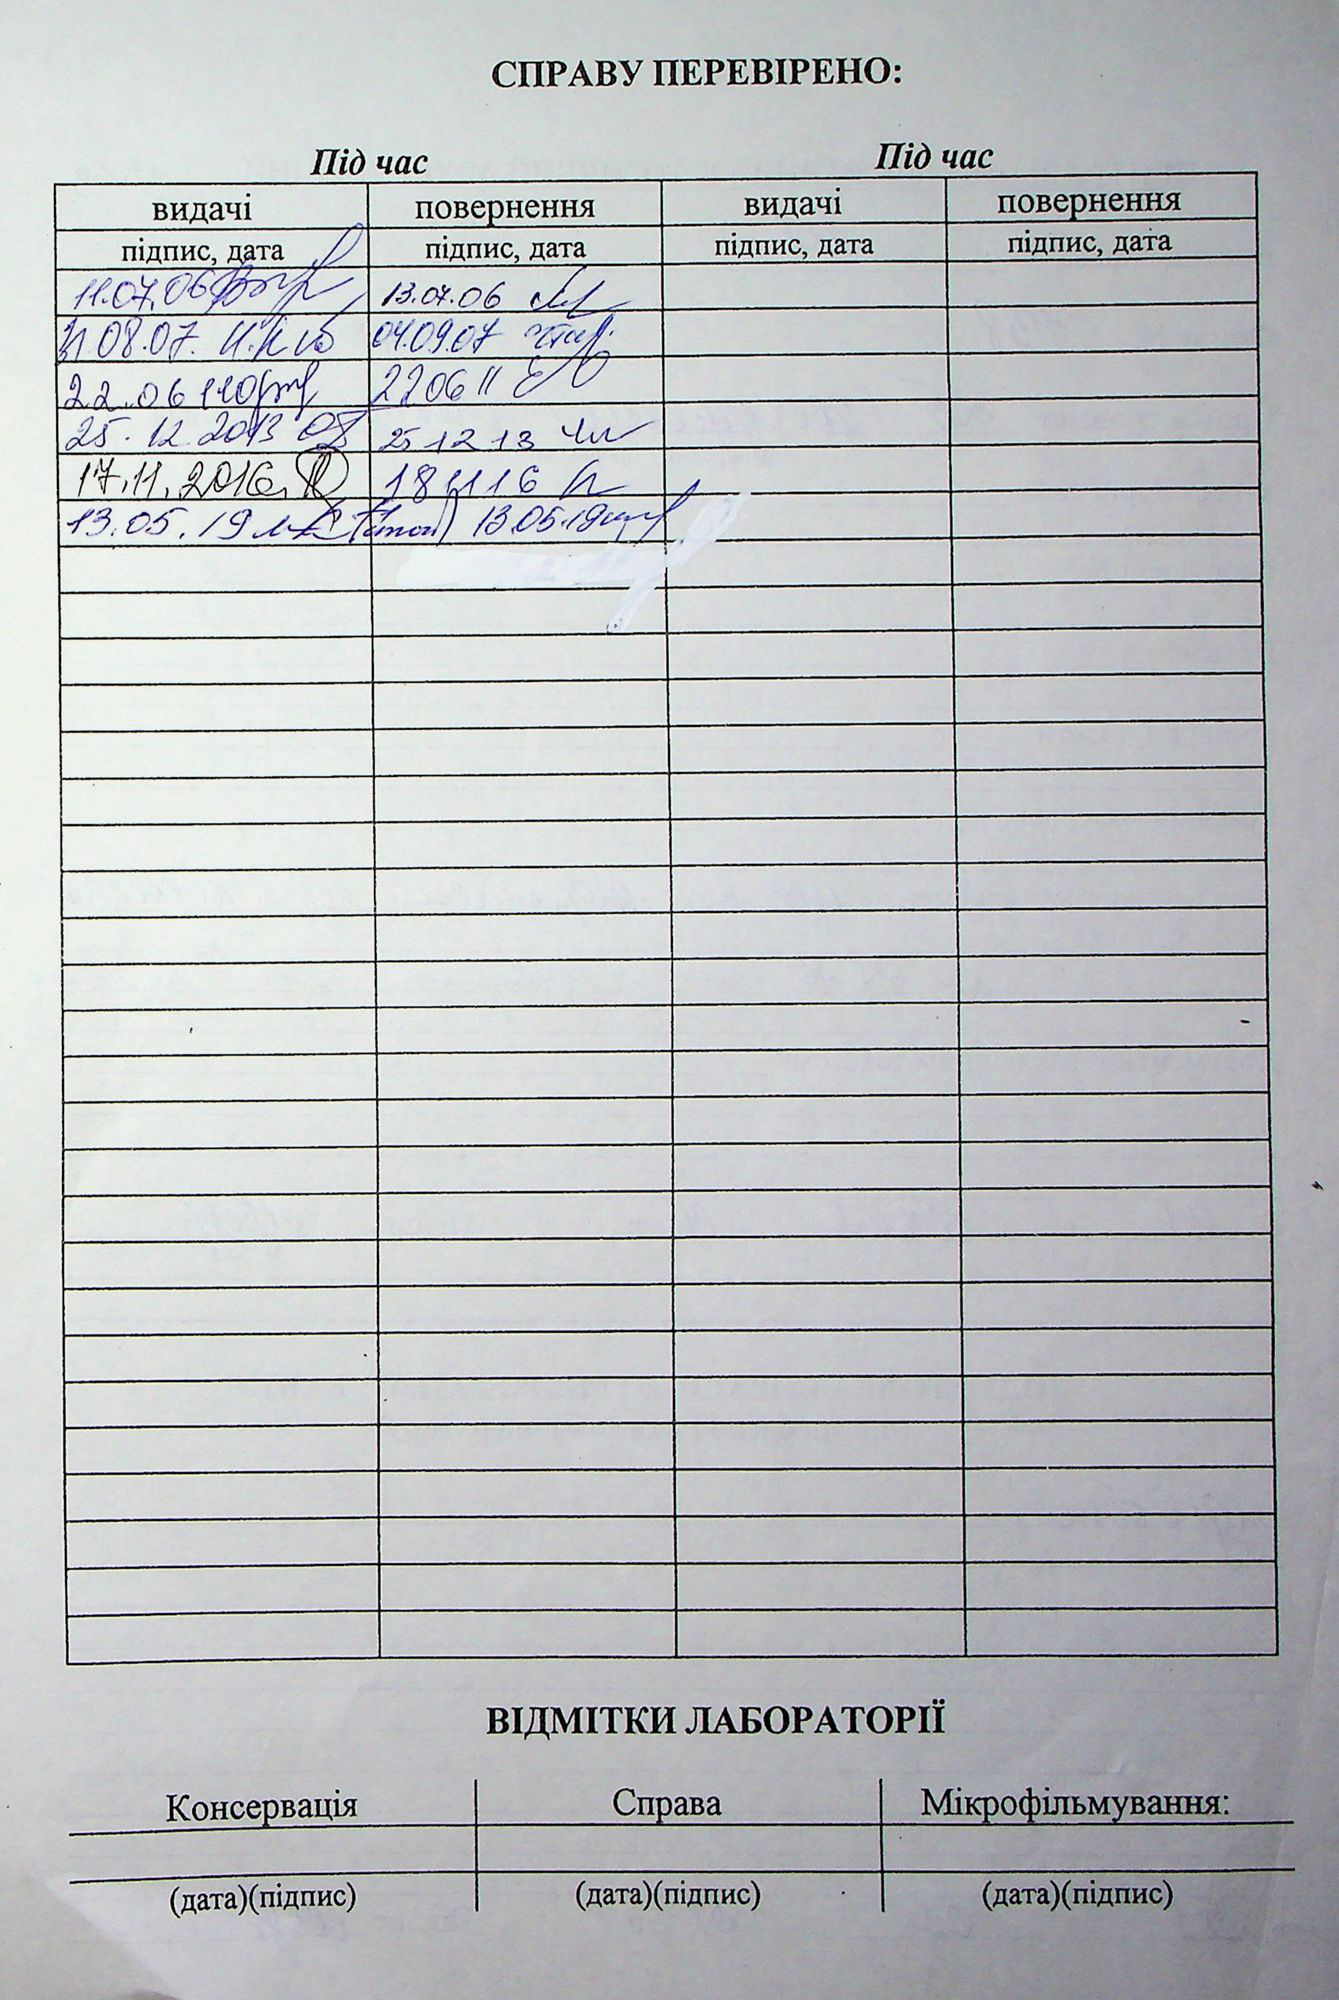 СПРАВУ ПЕРЕВІРЕНО:
Під час Під час
видачі повернення видачі повернення
підпис, дата підпис, дата підпис, дата підпис, дата
11.07.06 13.07.06
31.08.07. 04.09.07
22.06 11 22 06 11
25.12.2013 25 12 13
17.11.2016 18 11 16
13.05.19 13.05.19
ВІДМІТКИ ЛАБОРАТОРІЇ
Консервація Справа Мікрофільмування:
(дата)(підпис) (дата)(підпис) (дата)(підпис)